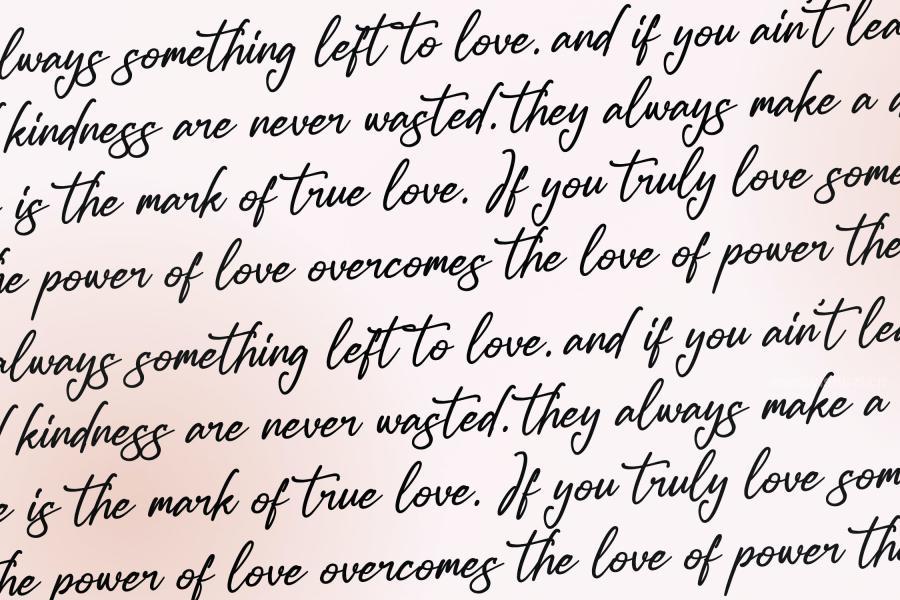 lways something left to love. and if you ain't lea
kindness are never wasted. they always make a
is the mark of true love. If you truly love some
he power of love overcomes the love of power the
always something left to love. and if you ain't lea
kindness are never wasted. they always make a
e is the mark of true love. If you truly love som
the power of love overcomes the love of power the